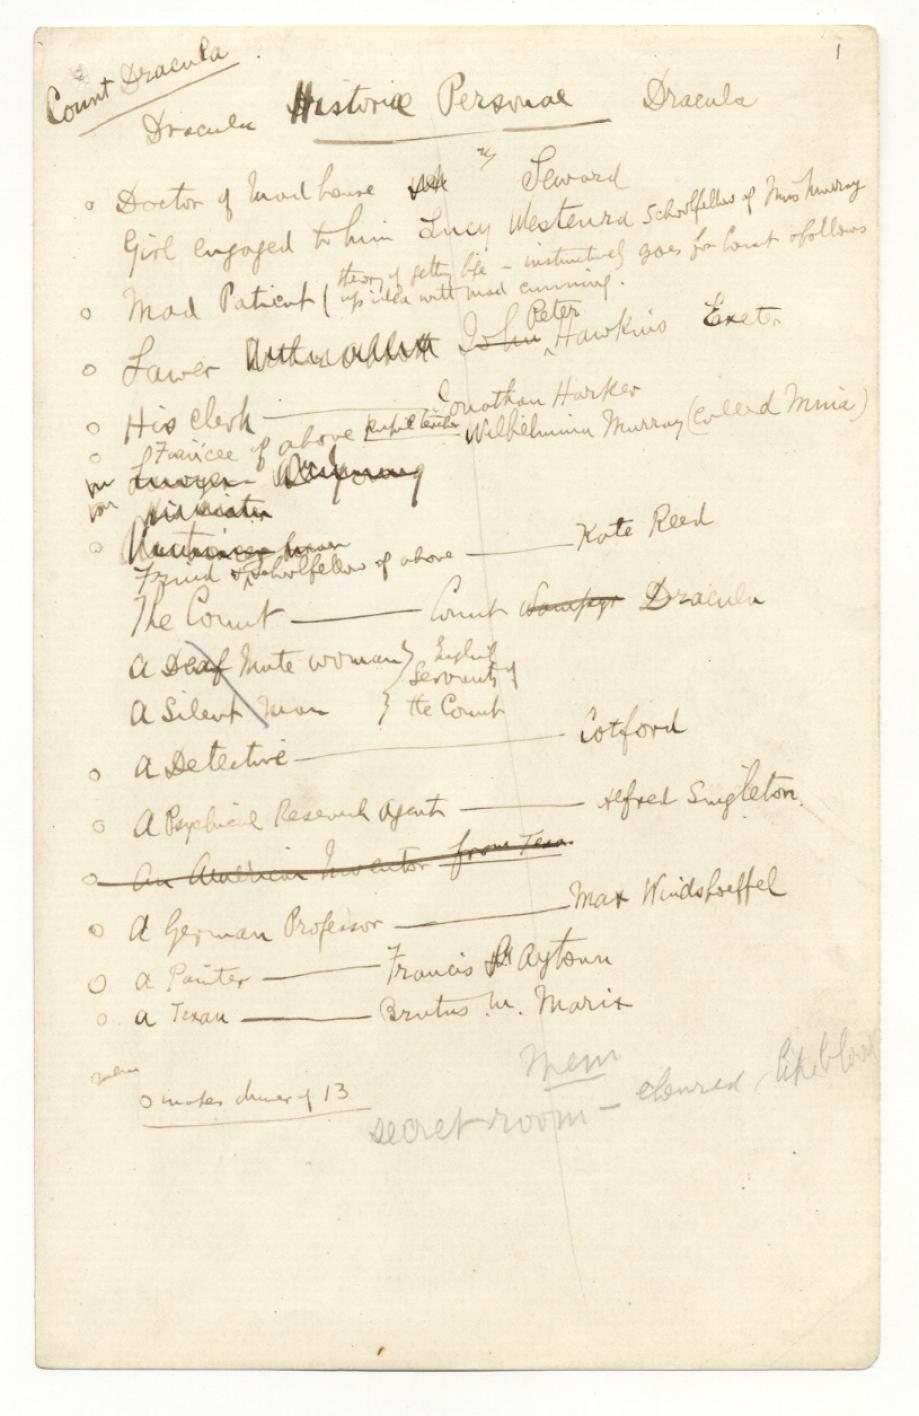 1
Count Dracula
Dracula Historiæ Personae Dracula
Doctor of Mad house Seward
Girl engaged to him Lucy Westenra Schoolfellow of Miss Murray
Mad Patient (theory of getting life – instinctively goes for Count & follows
up idea with mad cunning.
Lawer John Peter Hawkins Exeter
His clerk Jonathan Harker
Fiancee of above pupil teacher Wilhelmina Murray (called Mina)
Lawyer
Friend & Schoolfellow of above Kate Reed
The Count Count Wampyr Dracula
A Deaf Mute woman } English
A Silent Man } Servants of
the Count
A Detective Cotford
A Psychical Research Agent Alfred Singleton
An American Inventor from Texas
A German Professor Max Windshoeffel
A Painter Francis Aytown
A Texan Brutus M. Marix
Mem
mem
secret room – coloured like blood
makes dinner of 13